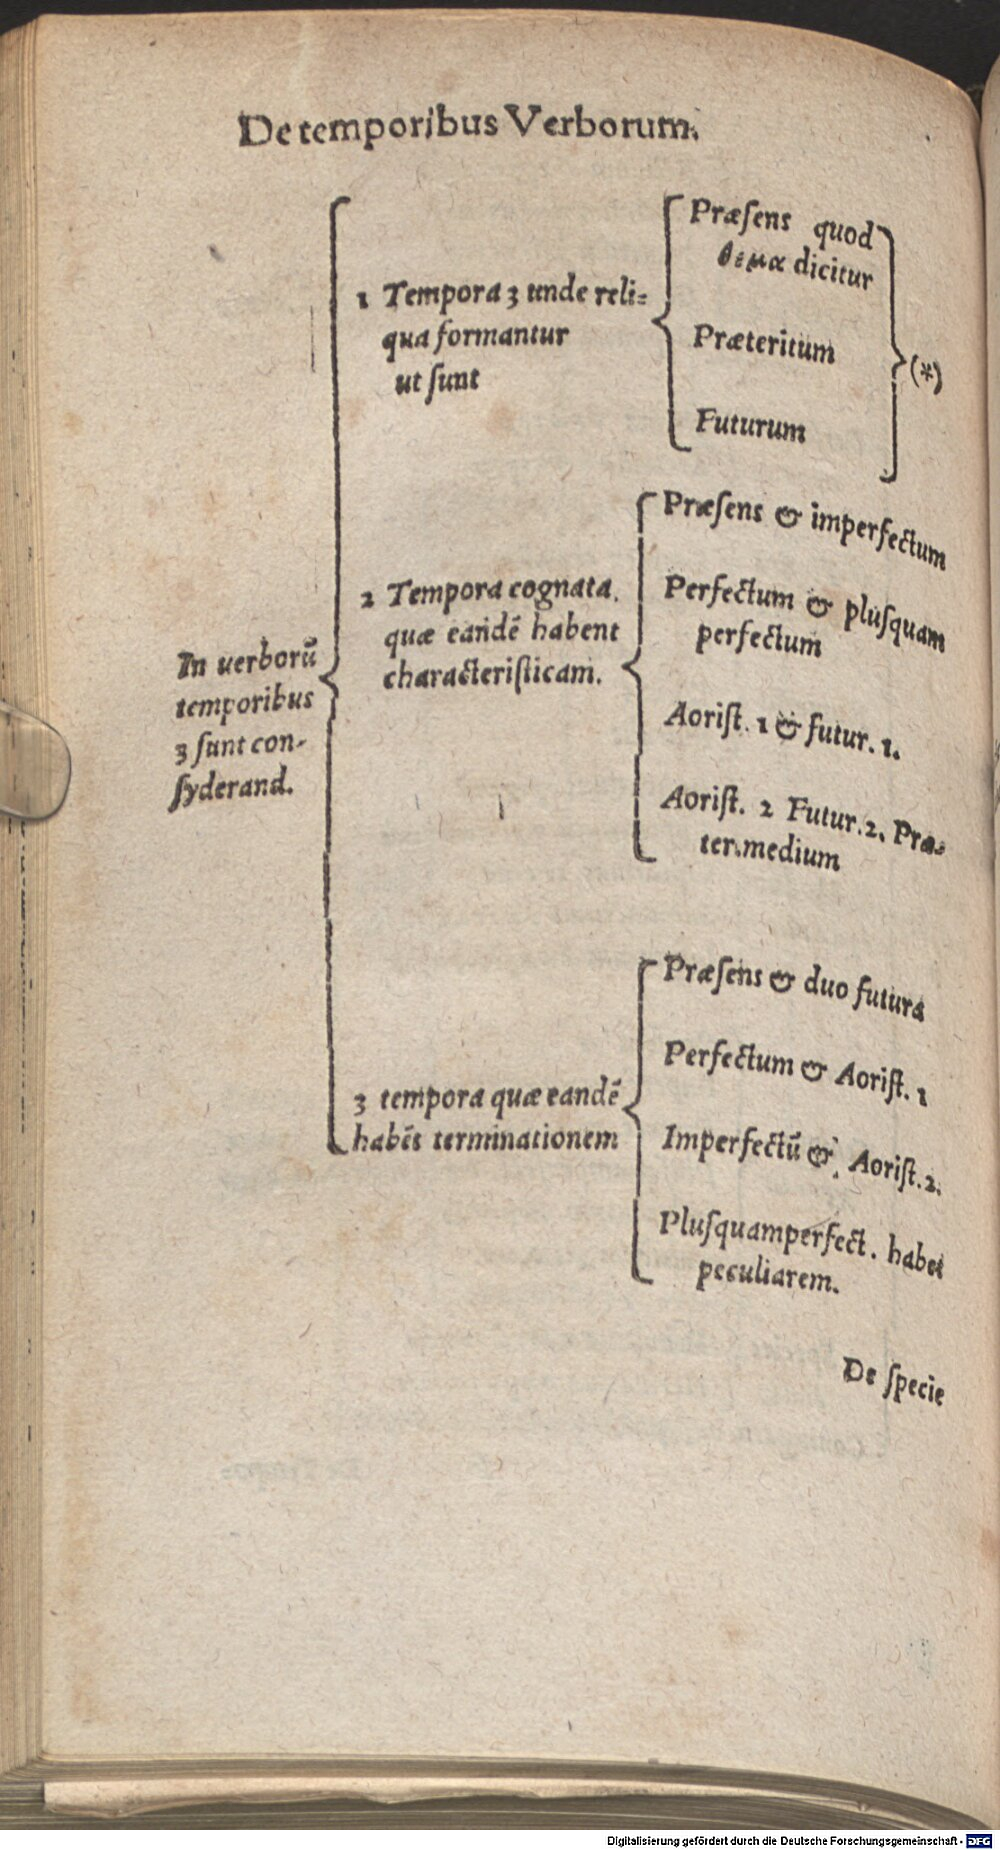 De temporibus Verborum.
In uerborũ
temporibus
3 sunt con-
syderand.
1 Tempora 3 unde reli=
qua formantur
ut sunt
Præſens quod
θεμα dicitur
Præteritum
Futurum
(*)
2 Tempora cognata,
quæ eandẽ habent
characteriſticam.
Præſens & imperfectum
Perfectum & pluſquam
perfectum
Aoriſt. 1 & futur. 1.
Aoriſt. 2 Futur. 2. Præ=
ter.medium
3 tempora quæ eandẽ
habẽt terminationem
Præſens & duo futura
Perfectum & Aoriſt. 1
Imperfectũ & Aoriſt. 2.
Pluſquamperfect. habet
peculiarem.
De ſpecie
Digitalisierung gefördert durch die Deutsche Forschungsgemeinschaft - DFG